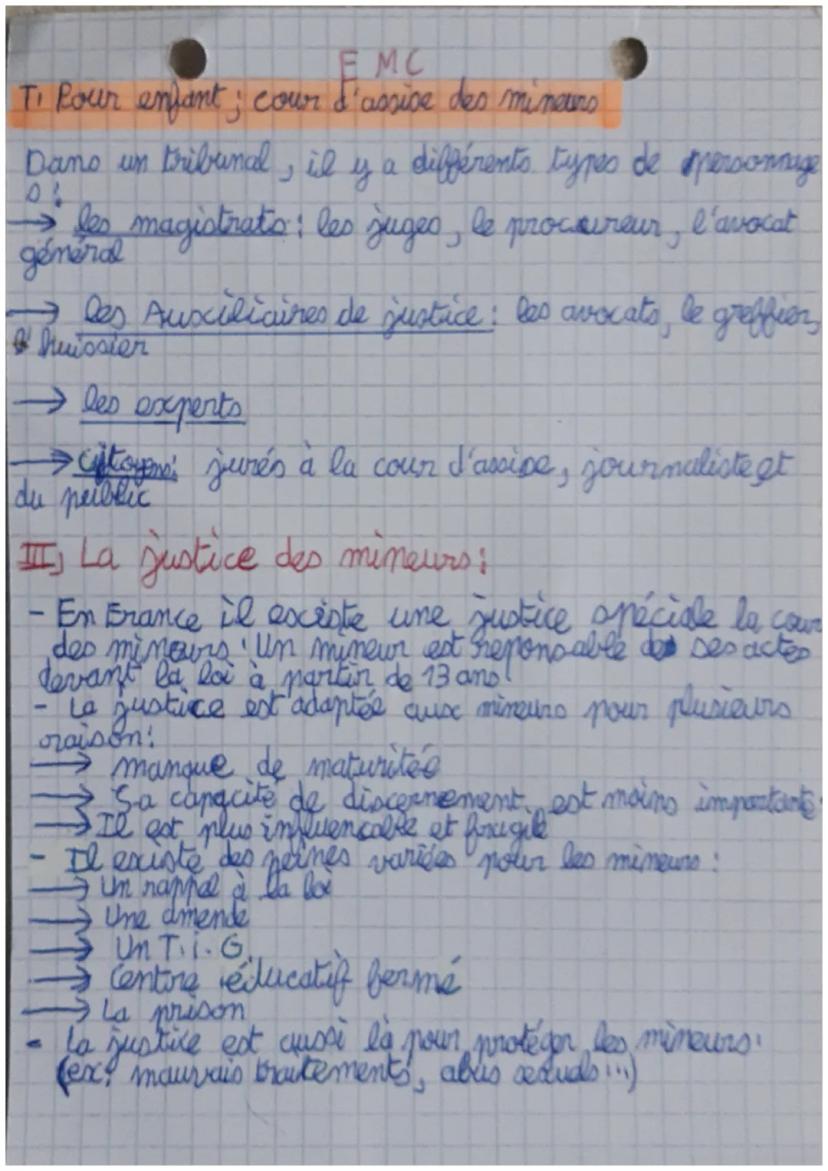 EMC
T. Pour enfant ; cour d'assise des mineurs
Dans un tribunal, il y a différents types de personnage
s :
→ les magistrats : les juges, le procureur, l'avocat
général
→ les Auxiliciaires de justice : les avocats, le greffier,
l'huissier
→ les experts
→ citoyens : jurés à la cour d'assise, journaliste et
du public
III) La justice des mineurs :
- En France il existe une justice spéciale la cour
des mineurs. Un mineur est reponsable de ses actes
devant la loi à partir de 13 ans.
- La justice est adaptée aux mineurs pour plusieurs
raison :
→ manque de maturitée
→ Sa capacité de discernement est moins importante.
→ Il est plus influençable et fragile
- Il existe des peines variées pour les mineurs :
→ Un rappel à la loi
→ Une amende
→ Un T.i.G.
→ Centre éducatif fermé
→ La prison
- La justice est aussi là pour protéger les mineurs.
(ex : mauvais traitements, abus sexuels...)